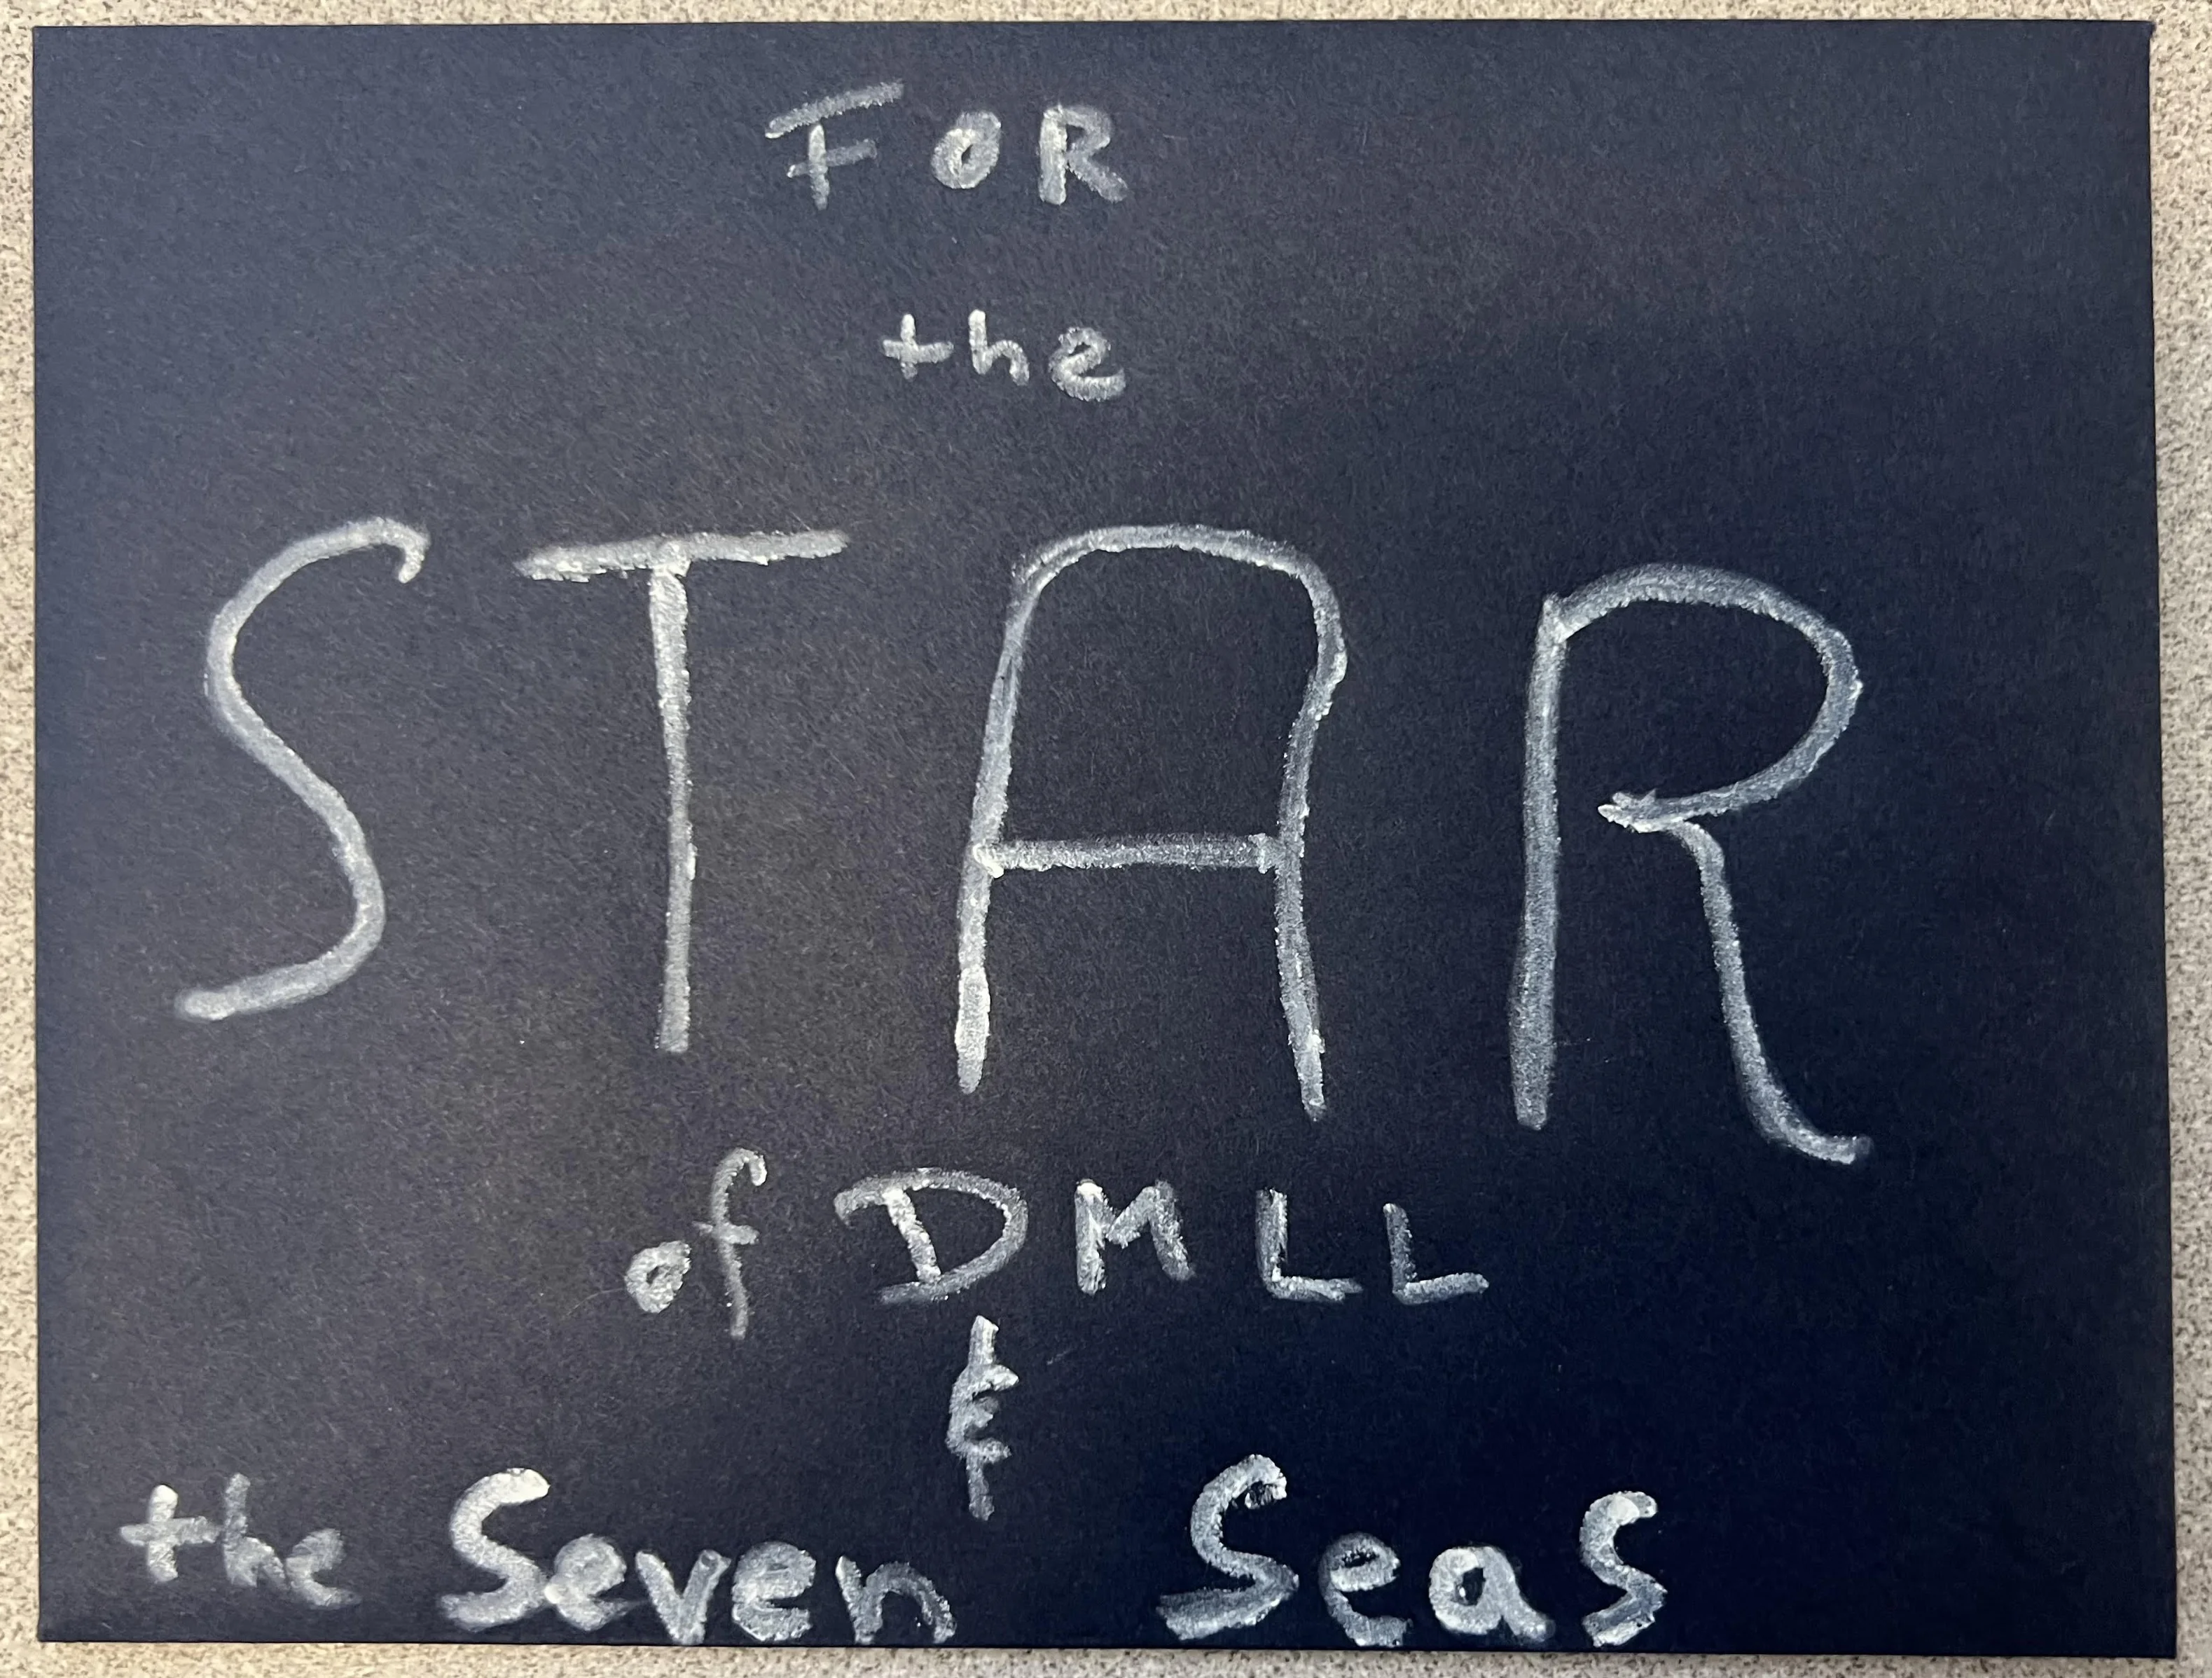 FOR
the
STAR
of DMLL
&
the Seven Seas